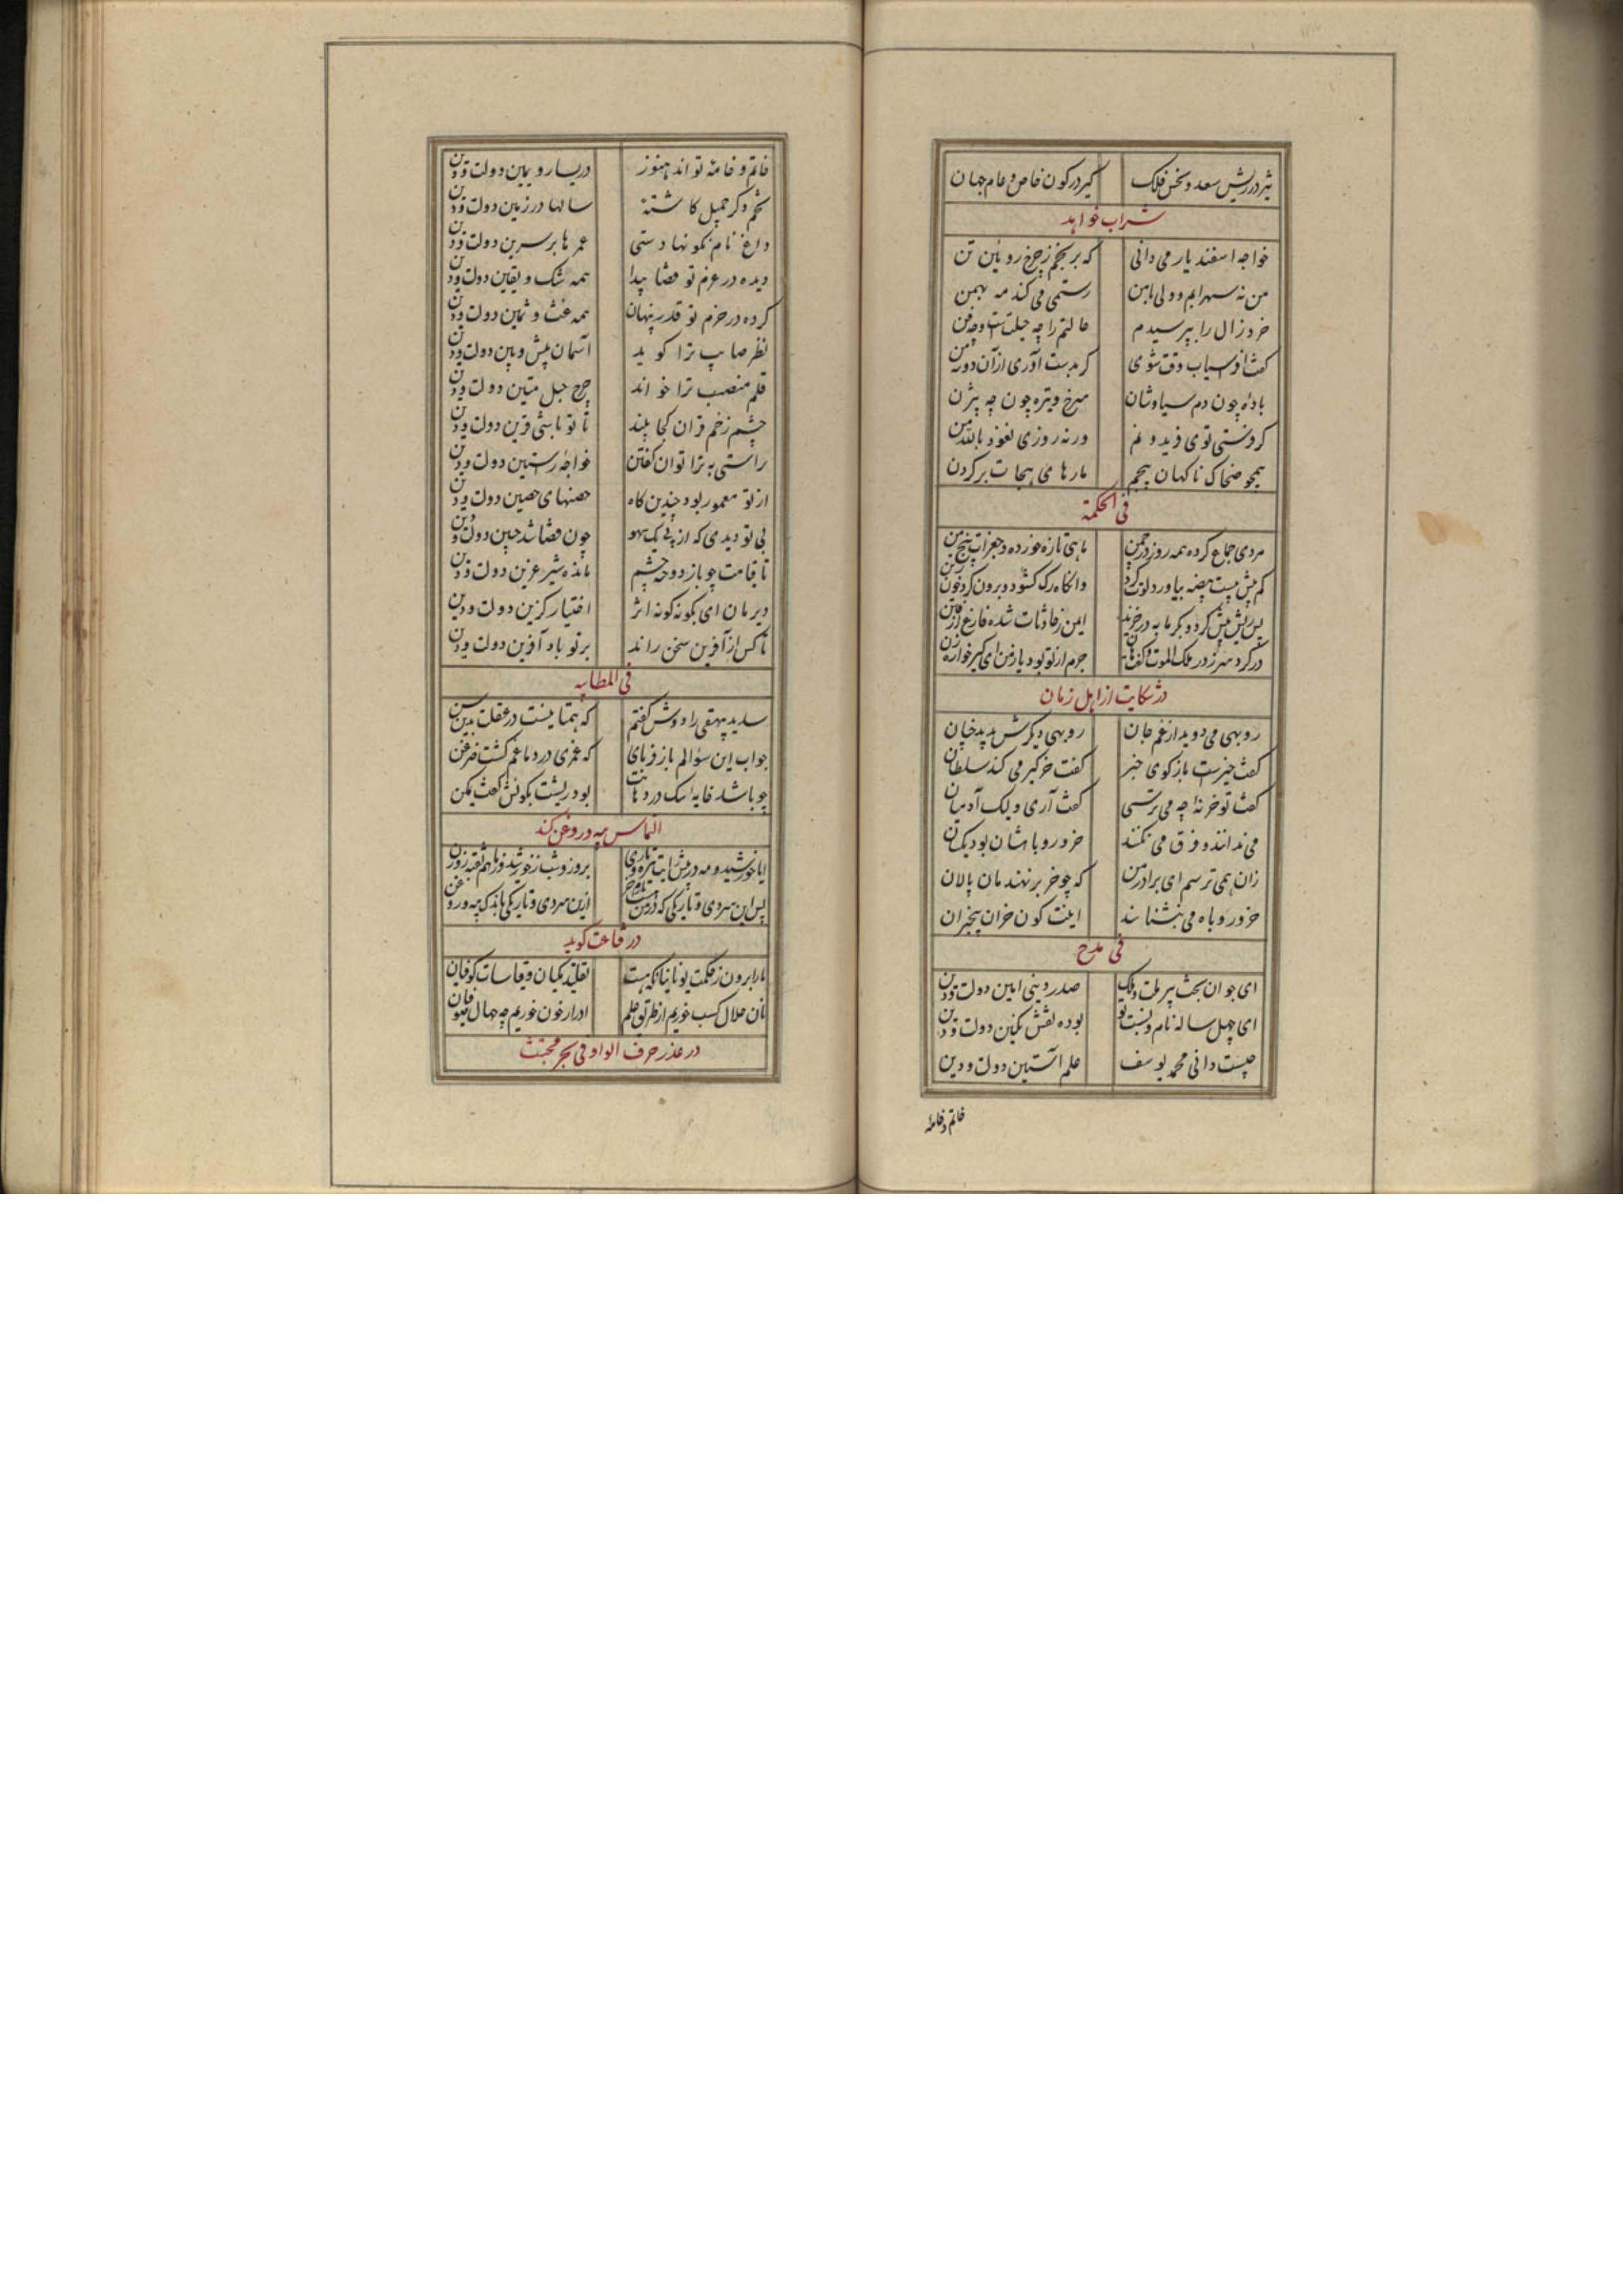 تیر در ریش سعد و نحس فلک گیر در کون خاص و عام جهان
شراب خواهد
خواجه اسفندیار می دانی که برنجم ز چرخ روئین تن
من نه سهرابم و ولی با من رستمی می کند مه بهمن
خرد زال را بپرسیدم حالتم را چه حیلتست و چه فن
گفت افراسیاب وقت شوی گر بدست آوری از آن دو سه من
باده چون دم سیاوشان سرخ و تیره چون چه بیژن
گر فرستی توی فریدونم ورنه روزی نعوذ بالله من
همچو ضحاک ناگهان پیچم مارهای هجات بر گردن
فی الحکمة
مردی جماع کرده همه روز در چمن ماهی تازه خورده و جغرات پنج من
کم بیش بیست بیضه بیاورد لوت کرد وانگاه رگ گشود و برون کرد خون ز تن
پس ریش پیش کرد و بگرمابه در خزید ایمن ز حادثات شده فارغ از فتن
در کرد سر ز در ملک الموت و گفت هان جرم از تو بود یا ز من ای گیر خواره زن
در شکایت از اهل زمان
روبهی می دوید از غم جان روبهی دیگرش بدید چنان
گفت خیرست بازگوی خبر گفت خر گیر می کند سلطان
گفت تو خر نه چه می ترسی گفت آری ولیک آدمیان
می ندانند و فرق می نکنند خر و روباهشان بود یکسان
زان همی ترسم ای برادر من که چو خر بر نهندمان پالان
خر و روباه می بشناسند اینت کون خران بیخبران
فی مدح
ای جوان بخت پیر ملت و ملک صدر دینی امین دولت و دین
ای چهل ساله نام و نسبت تو بوده نقش نگین دولت و دین
چیست دانی محمد یوسف علم آستین دولت و دین
خاتم و خامهٔ
خاتم و خامهٔ تو اند هنوز در یسار و یمین دولت و دین
تخم ذکر جمیل کاشتهٔ سالها در زمین دولت و دین
داغ نام نکو نهادستی عمرها بر سرین دولت و دین
دیده در عزم تو قضا پیدا همه شک و یقین دولت و دین
کرده در حزم تو قدر پنهان همه غث و ثمین دولت و دین
نظر صایب ترا گوید آسمان پیش و پین دولت و دین
قلم منصب ترا خواند چرخ حبل متین دولت و دین
چشم زخم قران کجا بیند تا تو باشی قرین دولت و دین
راستی به ترا توان گفتن خواجهٔ رستین دولت و دین
از تو معمور بود چندین گاه حصنهای حصین دولت و دین
بی تو دیدی که از پی یک سهو چون قضا شد چنین دولت و دین
تا قیامت چو باز دوخته چشم مانده شیر عرین دولت و دین
دیرمان ای بگونه گونه اثر اختیار گزین دولت و دین
تا کس از آفرین سخن راند بر تو باد آفرین دولت و دین
فی المطایبه
سدید بیهقی را دوش گفتم که همتا نیست در عقلت بدین سن
جواب این سؤالم باز فرمای که عمری در دماغم گشت مزمن
چو باشد خایه سگ در دهانت بود ریشت بکونش گفت یمکن
التماس پیه در روغن کند
ایا خورشید و مه در پیش رایت تیره و تاری بروز و شب ز خورشید و ز ماهم نغنده روزن
پس این سردی و تاریکی که در من هست ازین سردی و تاریکی باندک پیه و روغن
در قناعت گوید
ما را برون ز حکمت یونانیان که هست تقلید مکیان و قیاسات کوفیان
نان حلال کسب خوریم از طریق علم ادرار خون خوریم چه جهال صوفیان
در عذر حرف الواو فی بحر مجتث